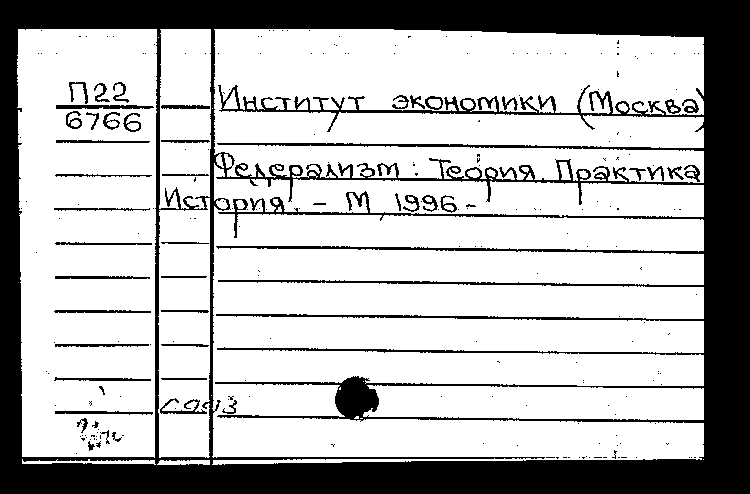 П22
6766
Институт экономики (Москва)
Федерализм : Теория. Практика
История. - М, 1996 -